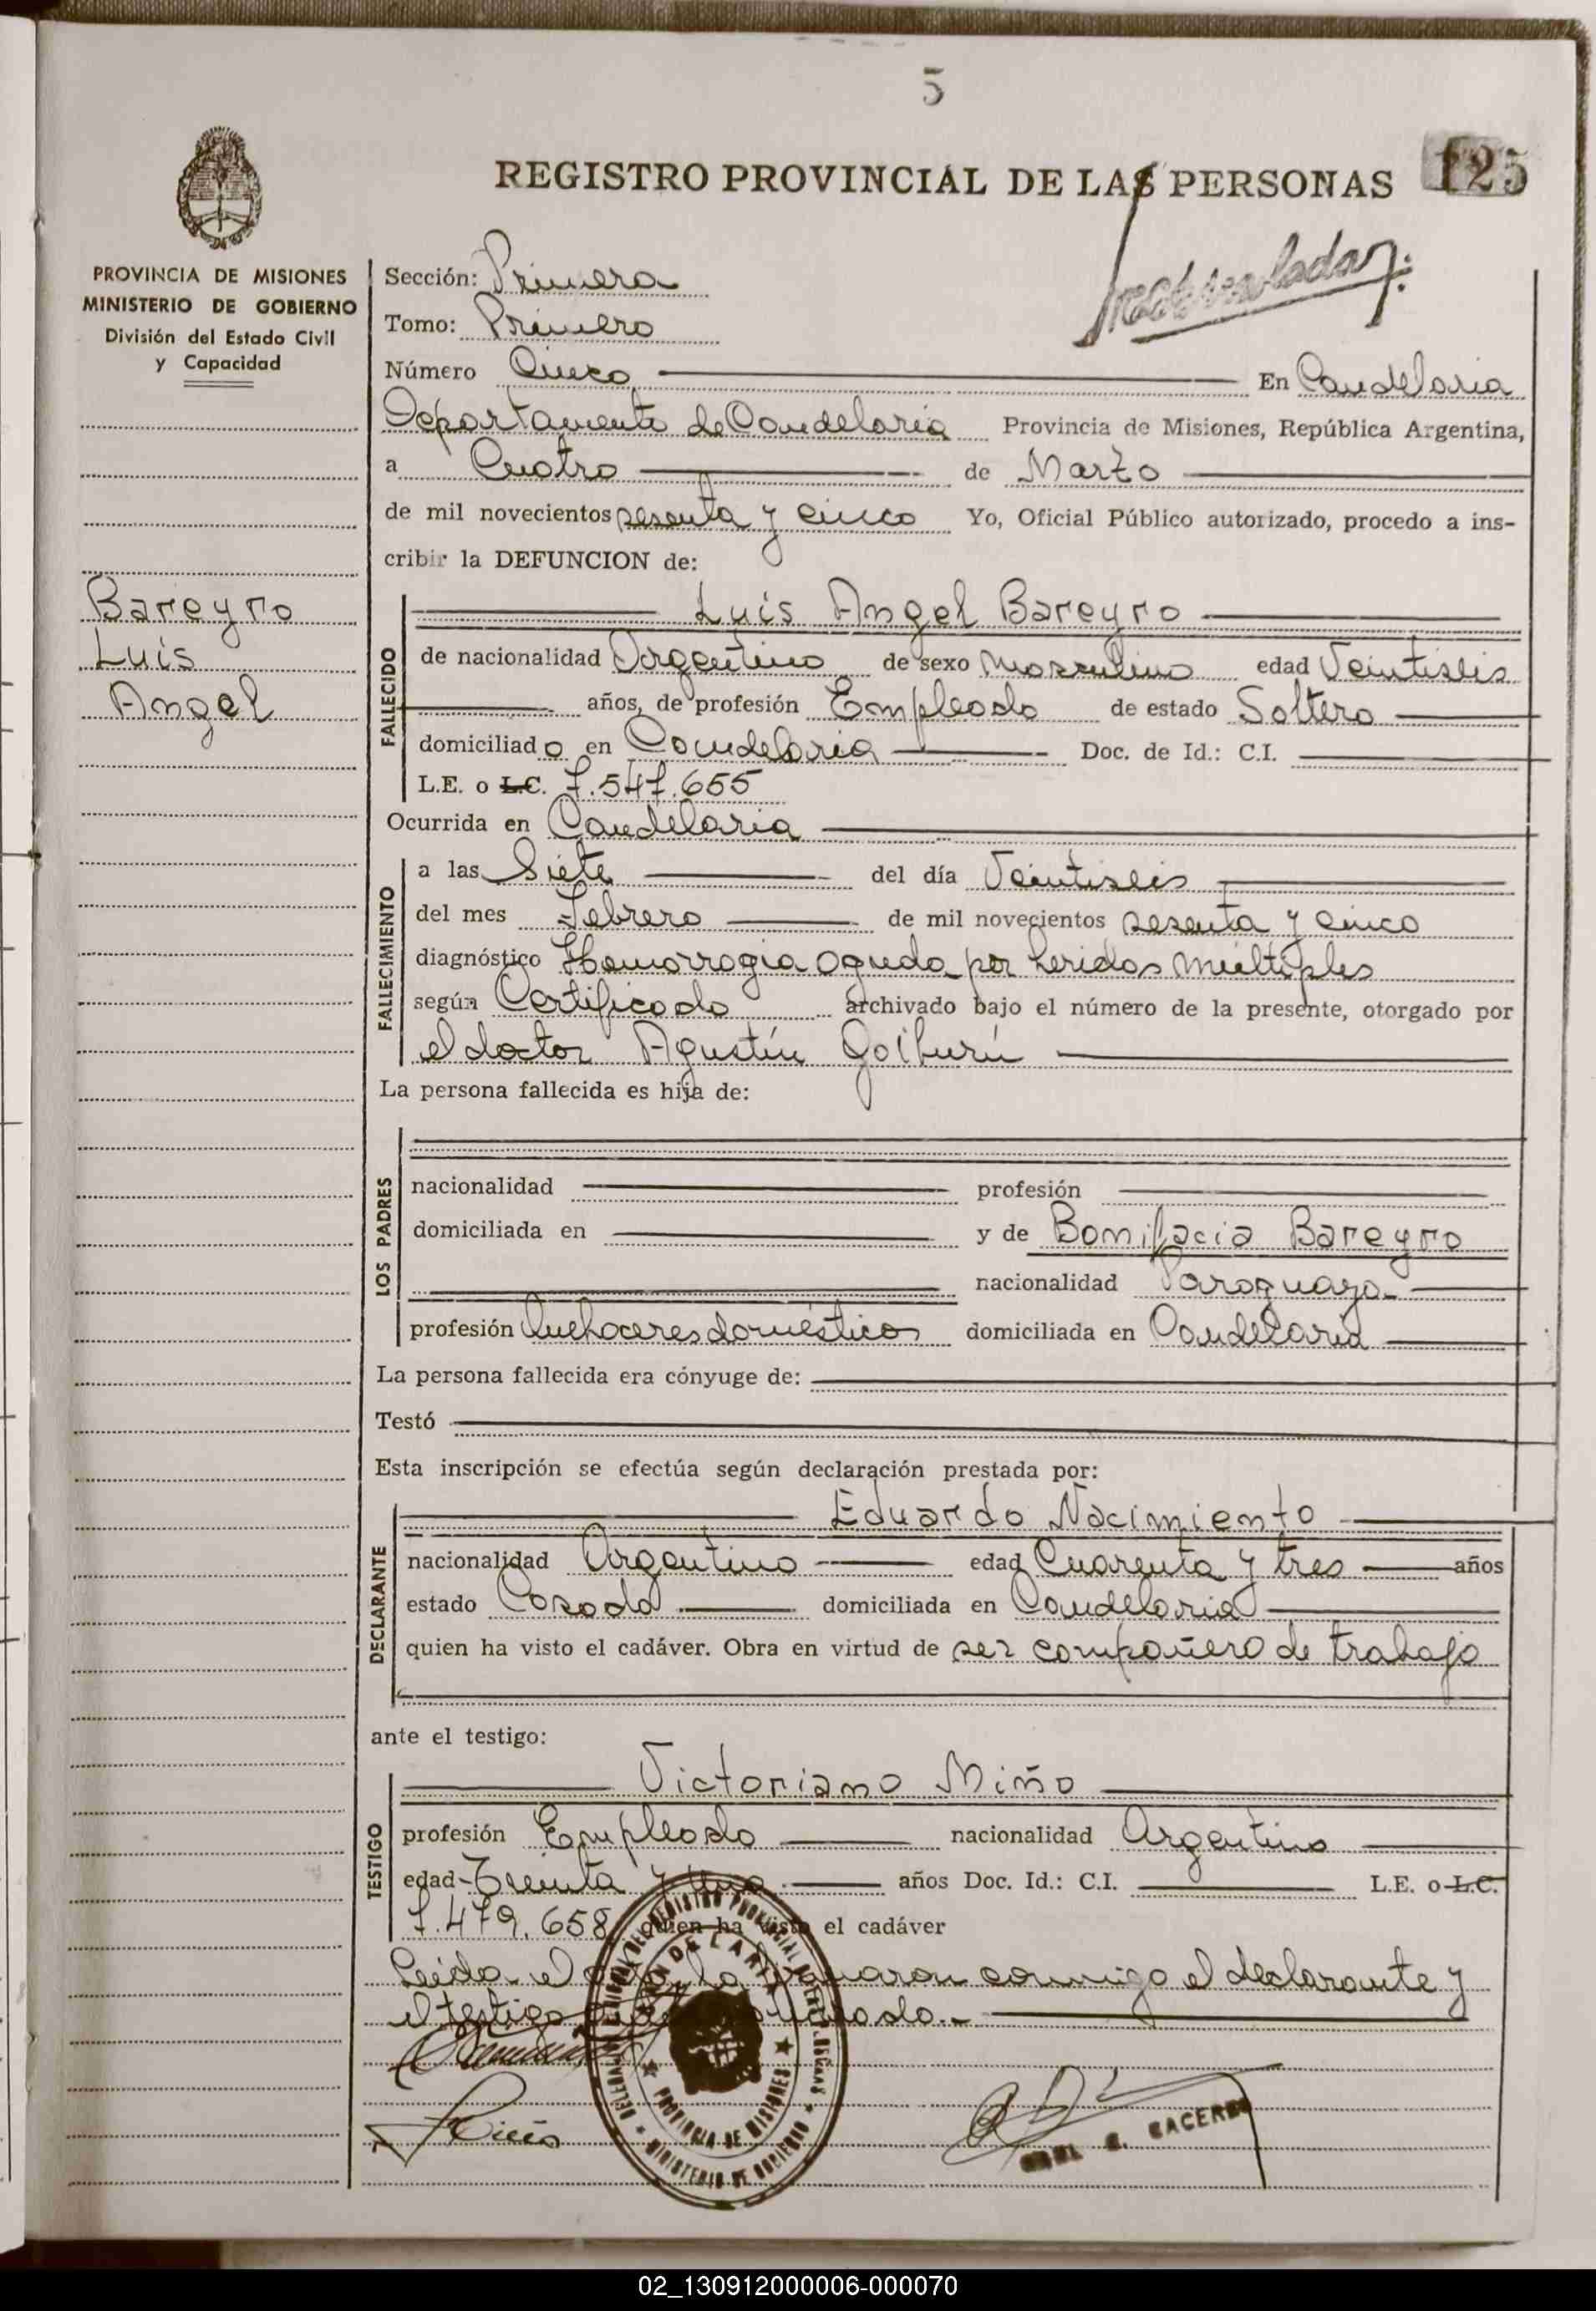 5
REGISTRO PROVINCIAL DE LAS PERSONAS 125
PROVINCIA DE MISIONES
MINISTERIO DE GOBIERNO
División del Estado Civil
y Capacidad
Bareyro
Luis
Angel
Sección: Primera
Tomo: Primero
Número Cinco En Candelaria
Departamento de Candelaria Provincia de Misiones, República Argentina,
a Cuatro de Marzo
de mil novecientos sesenta y cinco Yo, Oficial Público autorizado, procedo a ins-
cribir la DEFUNCION de:
FALLECIDO
Luis Angel Bareyro
de nacionalidad Argentino de sexo masculino edad Veintiseis
años, de profesión Empleado de estado Soltero
domiciliado en Candelaria Doc. de Id.: C.I.
L.E. o L.C. 7.547.655
Ocurrida en Candelaria
FALLECIMIENTO
a las Siete del día Veintiseis
del mes Febrero de mil novecientos sesenta y cinco
diagnóstico Hemorragia aguda por heridas múltiples
según Certificado archivado bajo el número de la presente, otorgado por
el doctor Agustín Goiburú
La persona fallecida es hija de:
LOS PADRES
nacionalidad profesión
domiciliada en y de Bonifacia Bareyro
nacionalidad Paraguaya
profesión Quehaceres domésticos domiciliada en Candelaria
La persona fallecida era cónyuge de:
Testó
Esta inscripción se efectúa según declaración prestada por:
DECLARANTE
Eduardo Nacimiento
nacionalidad Argentino edad Cuarenta y tres años
estado Casado domiciliada en Candelaria
quien ha visto el cadáver. Obra en virtud de ser compañero de trabajo
ante el testigo:
TESTIGO
Victoriano Miño
profesión Empleado nacionalidad Argentino
edad Treinta y uno años Doc. Id.: C.I. L.E. o L.C.
7.479.658 quien ha visto el cadáver
Leída el acta, la firmaron conmigo el declarante y
el testigo
PROVINCIA DE MISIONES
MINISTERIO DE GOBIERNO
Miño
02_130912000006-000070